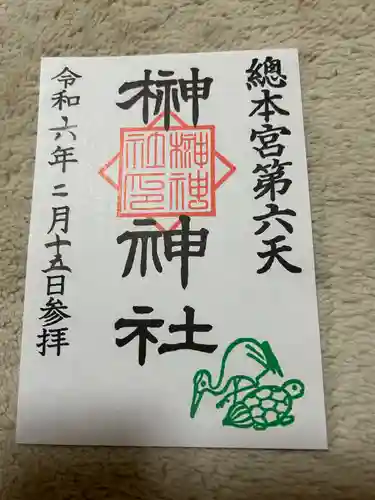 總本宮第六天
榊神社
榊神
社印
令和六年二月十五日参拝